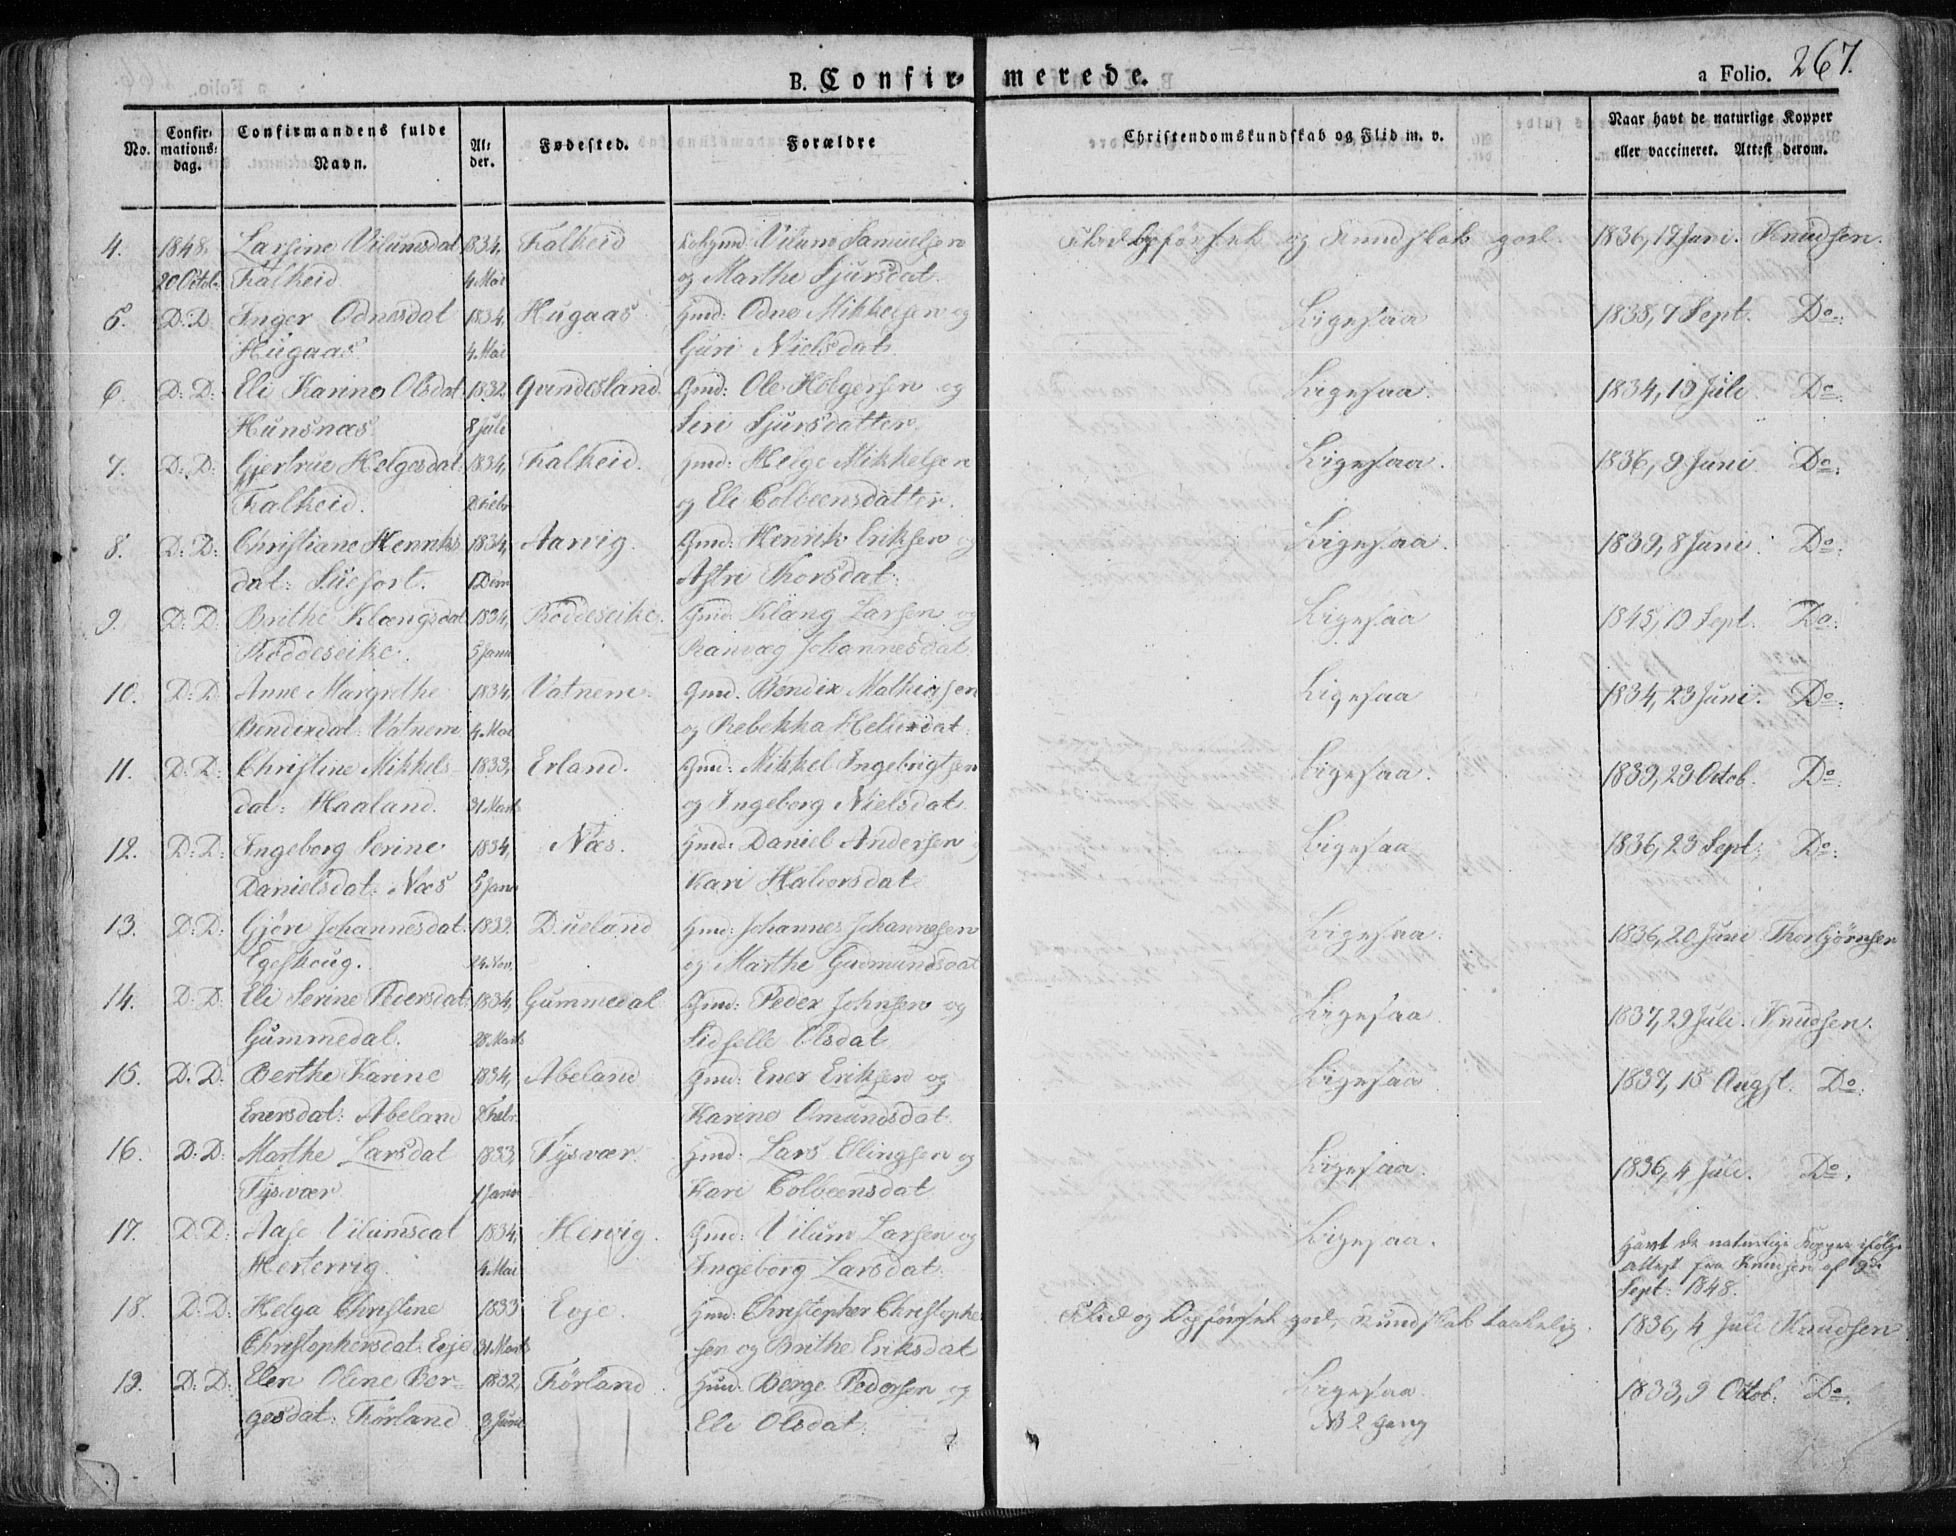 B. Confirmerede.
a Folio. 267.
No.
Confirmations-dag.
Confirmandens fulde Navn.
Alder.
Fødested.
Forældre
Christendomskundskab og Flid m. v.
Naar havt de naturlige Kopper
eller vaccineret. Attest derom.
4. 1848. Larsine Vilumsdat 1834, Falkeid Vilum Samuelsen Flid Opførsel og Kundskab god. 1836, 12 Juni. Knudsen.
20 Octob. Falkeid. 4 Mai og Marthe Sjursdat
5. D: D Inger Odnesdat 1834, Hugaas Gmd: Odne Mikkelsen og Ligesaa 1838, 7 Sept. Do
Hugaas 4 Mai Guri Nielsdat
6. D: D: Eli Karine Olsdat 1832, Gundesland Gmd: Ole Holgersen og Ligesaa. 1834, 19 Juli Do
Hunsnæs 8 Juli Siri Sjursdatter
7. D: D: Gjertrue Helgesdat 1834, Falkeid. Gmd: Helge Mikkelsen Ligesaa. 1836, 9 Juni Do
Falkeid. Febr og Eli Colbeensdatter.
8. D: D: Christiane Henriks 1834, Aarvig. Gmd: Henrik Eriksen og Ligesaa. 1839, 8 Juni Do
dat: Suefort. Astri Thorsdat.
9. D: D: Brithe Klængsdat 1834, Röddeseike. Gmd: Kläng Larsen og Ligesaa 1845, 10 Sept. Do
Röddeseike. 5 Janu Ranvæg Johannesdat
10. D: D Anne Margrethe 1834, Vatnem. Gmd. Bendix Mathiasen Ligesaa 1834, 23 Juni. Do
Bendixdat: Vatnem 4 Mai og Rebekka
11. D: D: Christine Mikkels- 1833, Erland. Gmd: Mikkel Ingebrigtsen Ligesaa. 1839, 23 Octob. Do
dat: Haaland. 31 Marts og Ingeborg Nielsdat
12. D: D: Ingeborg Serine 1834, Næs. Gmd: Daniel Andersen Ligesaa 1836, 23 Sept. Do
Danielsdat: Næs 5 Janu Kari Halvorsdat
13. D: D: Gjöri Johannesdat: 1833. Dueland Gmd: Johannes Johannesen Ligesaa. 1836, 20 Juni Thorbjörnsen
Egeskoug. 24 Nov. og Marthe Gudmundsdat
14. D: D: Eli Serine Pedersdat 1834, Gummedal Gmd: Peder Johnsen og Ligesaa 1837, 29 Juli. Knudsen.
Gummedal. 28 Marts Sidselle Olsdat
15. D: D: Berthe Karine 1834, Abeland Gmd: Ener Eriksen og Ligesaa 1837, 15 Augst. Do
Enersdat: Abeland Febr. Karine Omundsdat.
16. D: D: Marthe Larsdat 1833, Tysvær. Gmd: Lars Ellingsen og Ligesaa. 1836, 4 Juli. Do
Tysvær 1 Janu Kari Colbeensdat
17. D: D: Aase Vilumsdat 1834, Hervig. Gmd: Vilum Larsen og Ligesaa. Havt de naturlige Kopper ifölge
Hertervig 4 Mai Ingeborg Larsdat Attest fra Knudsen af 9de
Sept: 1848.
18. D: D: Helga Christine 1833 Evje. Gmd: Christopher Christophe Flid og Opførsel god, Kundskab taalelig. 1836, 4 Juli Knudsen
Christophersdat: Evje 31 Marts sen og Brithe Eriksdat
19. D: D: Elen Oline Ber- 1832, Förland. Gmd. Berge Pedersen og Ligesaa. 1833, 9 Octob. Do
gesdat: Förland 3 Juni Eli Olsdat. NB 2 Gang